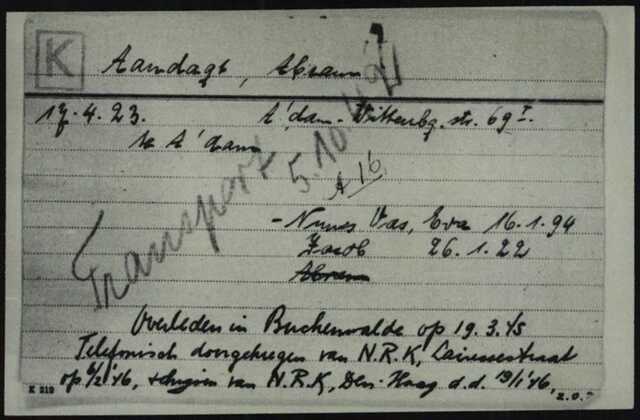 K
Aandagt, Abram
17.4.23. A'dam - Wittenbg. str. 69 I.
te A'dam
Transport 5.10.
A 16
- Nunes Vas, Eva 16.1.94
Jacob 26.1.22
Abram
Overleden in Buchenwalde op 19.3.45
Telefonisch doorgekregen van N.R.K, Lairessestraat
op 6/2 '46, schrijven van N.R.K, Den Haag d.d. 19/1 '46,
K 319 z.o.z